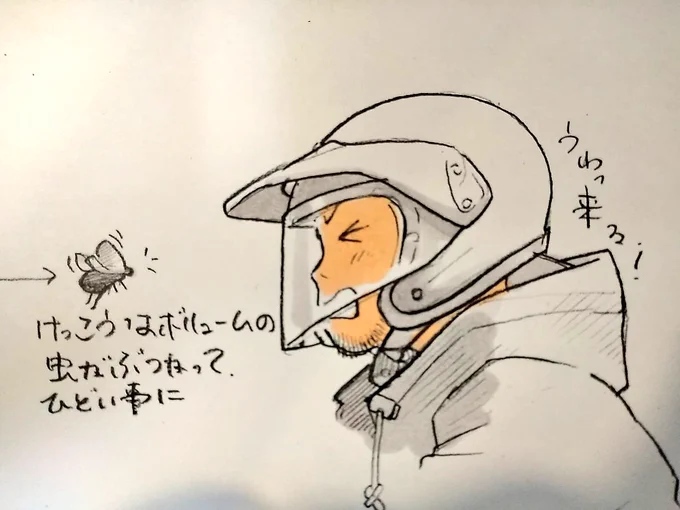 うわっ来る!
けっこうなボリュームの
虫がぶつかって、
ひどい事に